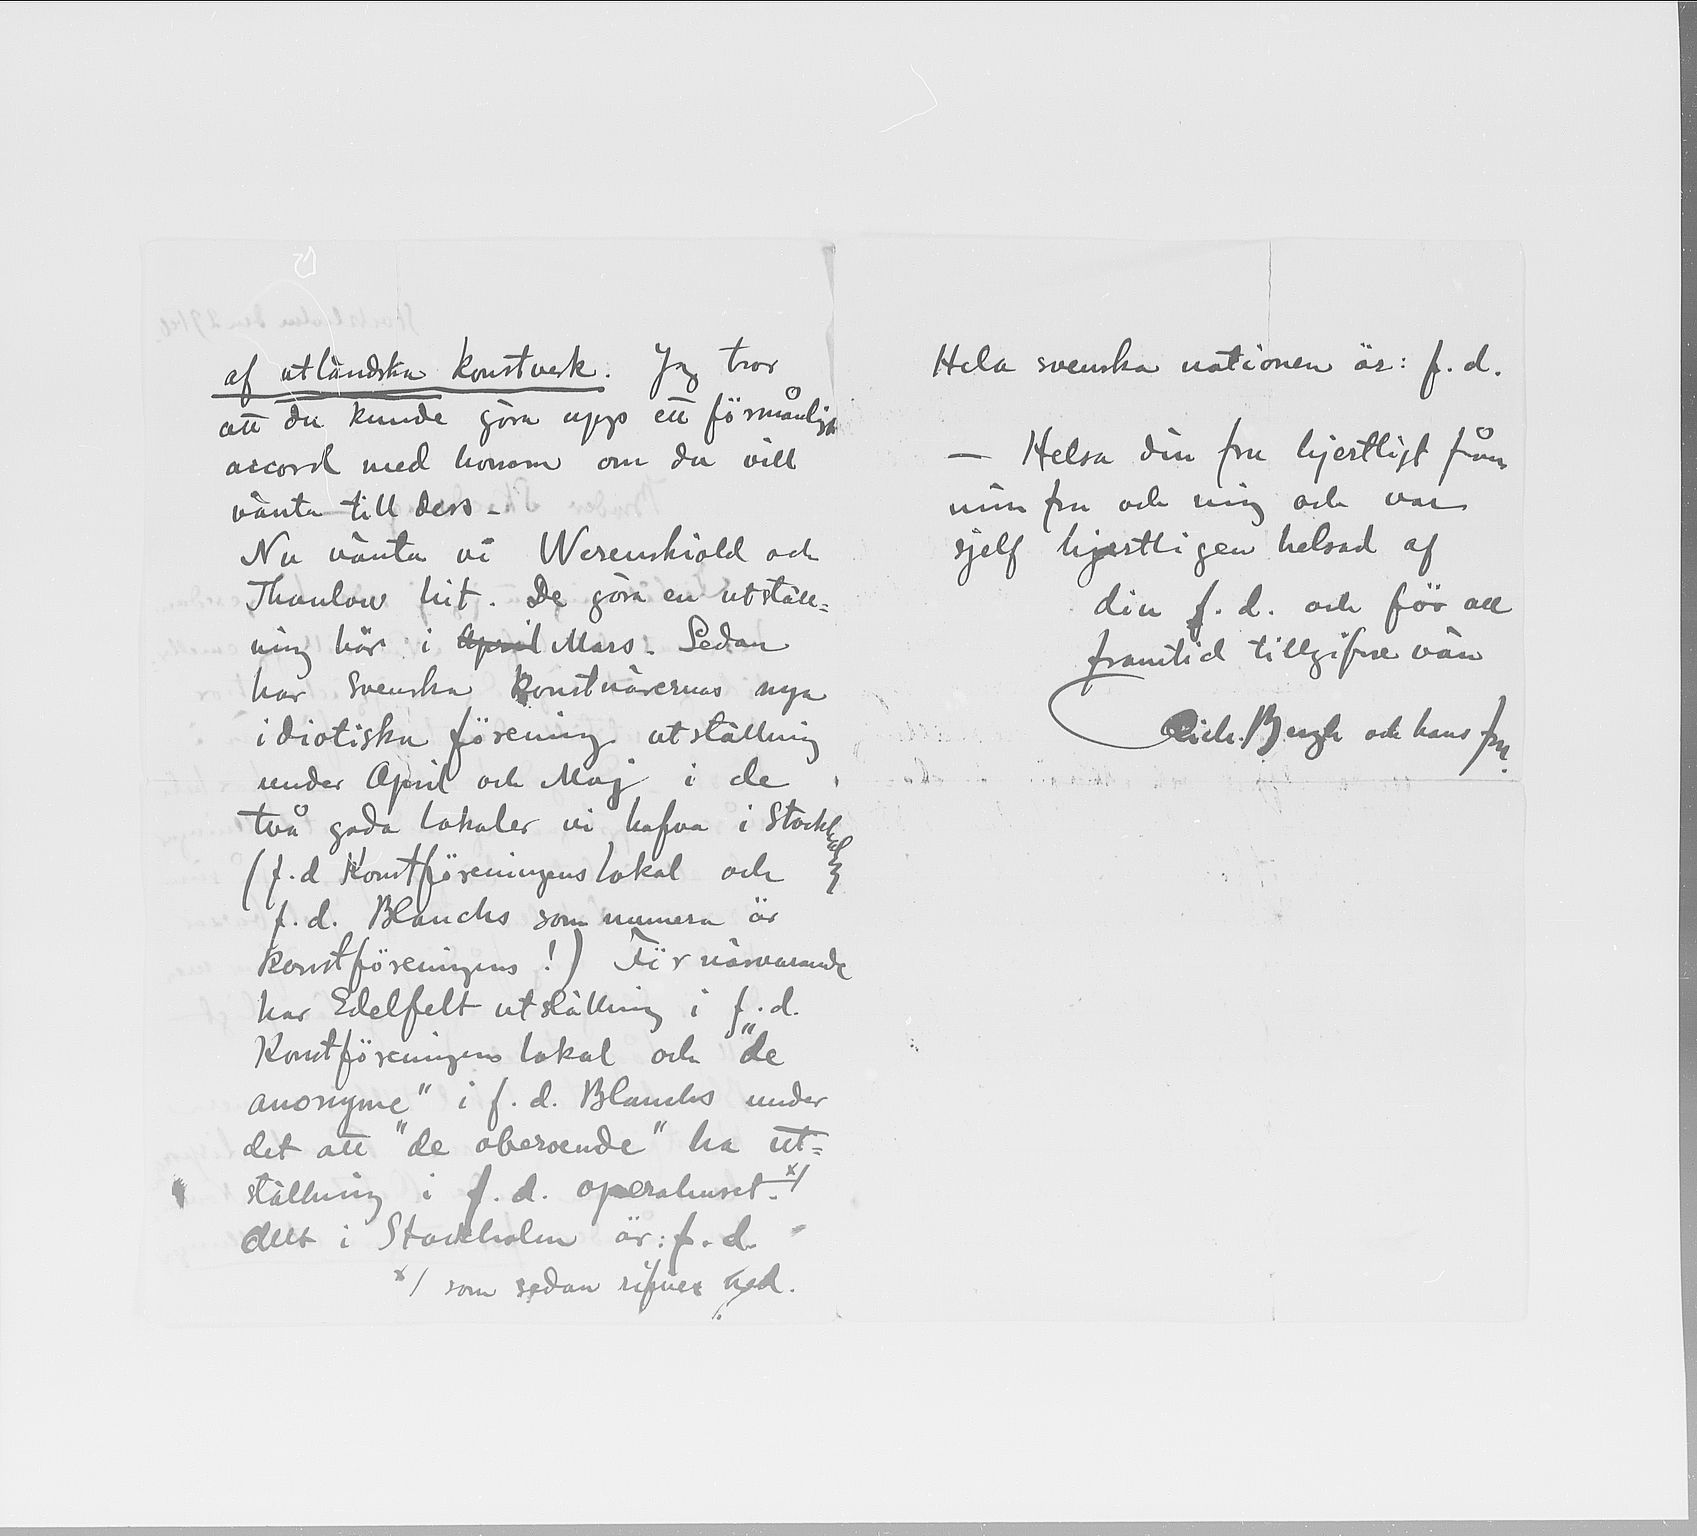 af utländska konstverk. Jag tror
att du kunde göra upp ett förmånligt
accord med honom om du vill
vänta till dess –
Nu vänta vi Werenskiold och
Thaulow hit. De göra en utställ=
ning här i April Mars. Sedan
har svenska konstnärernas nya
idiotiska förening utställning
under April och Maj i de
två goda lokaler vi hafva i Stockholm
(f.d Konstföreningens lokal och
f.d. Blanchs som numera är
konstföreningens!) För närvarande
har Edelfelt utställning i f.d.
Konstföreningens lokal och "de
anonyme" i f.d. Blanchs under
det att "de oberoende" ha ut=
ställning i f.d. operahuset. x/
Allt i Stockholm är: f.d.
x/ som sedan rifves ned.
Hela svenska nationen är: f.d.
— Helsa din fru hjertligt från
min fru och mig och var
sjelf hjertligen helsad af
din f.d. och för all
framtid tillgifne vän
Rich. Bergh och hans fru.